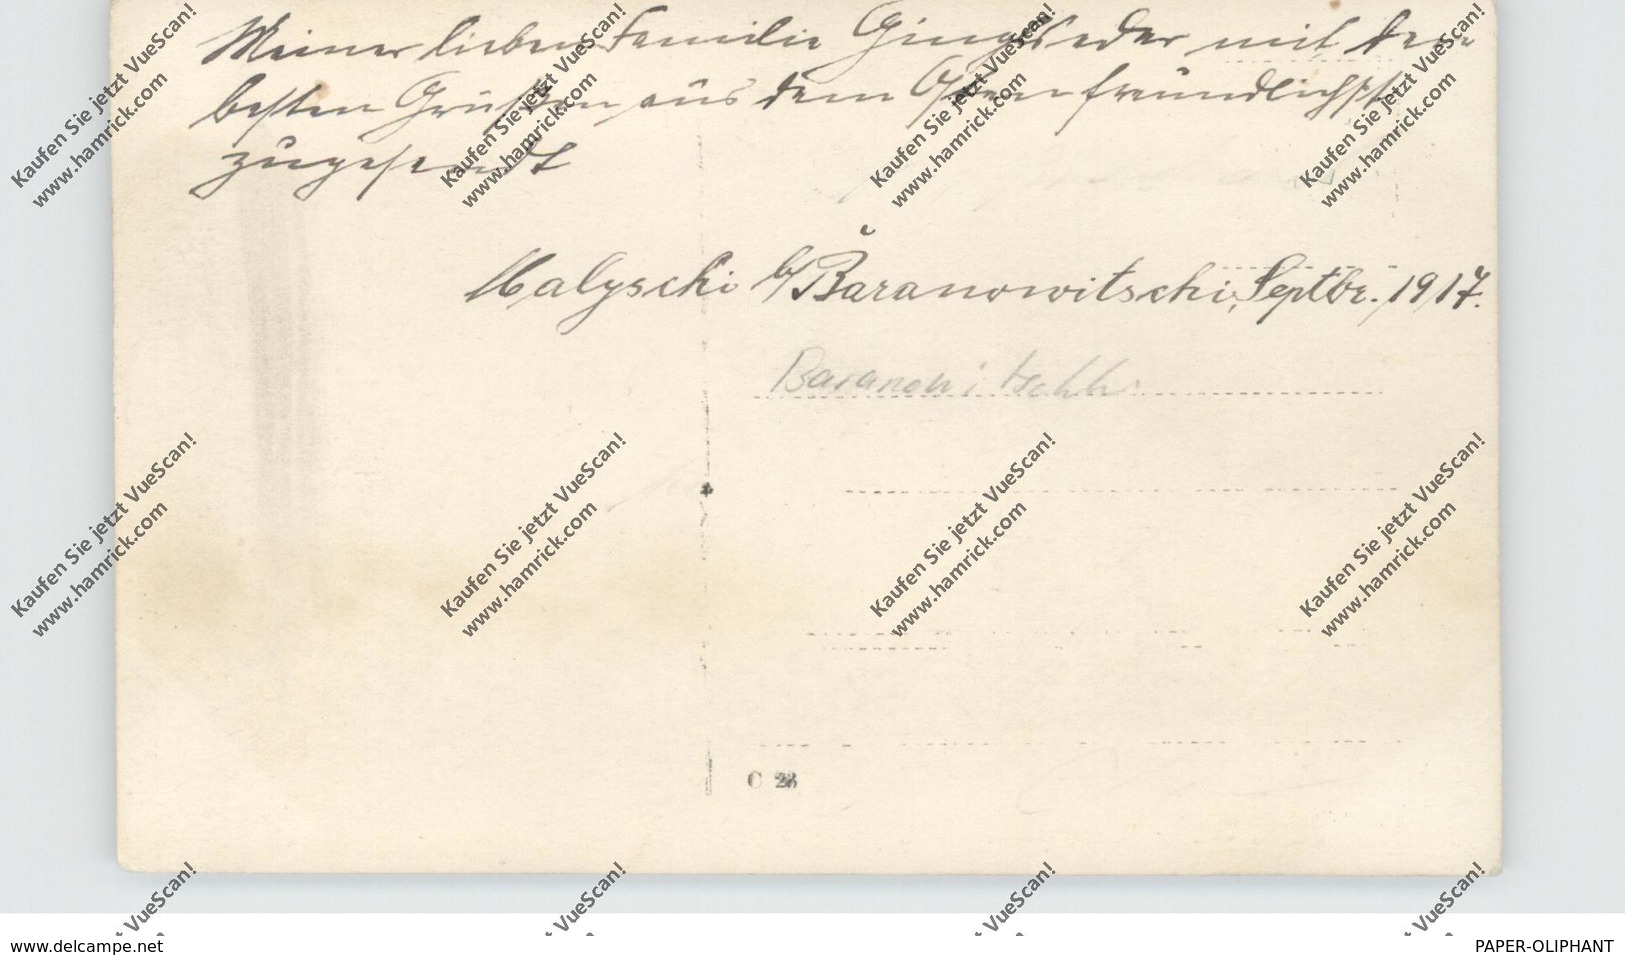 Meiner lieben Familie Gingseder mit den
besten Grüßen aus dem Osten freundlichst
zugesandt
Malyschi b/ Baranowitschi, Septbr. 1917.
Baranowitschi
C 23
Kaufen Sie jetzt VueScan!
www.hamrick.com
Kaufen Sie jetzt VueScan!
www.hamrick.com
Kaufen Sie jetzt VueScan!
www.hamrick.com
Kaufen Sie jetzt VueScan!
www.hamrick.com
Kaufen Sie jetzt VueScan!
www.hamrick.com
Kaufen Sie jetzt VueScan!
www.hamrick.com
Kaufen Sie jetzt VueScan!
www.hamrick.com
Kaufen Sie jetzt VueScan!
www.hamrick.com
VueScan!
VueScan!
VueScan!
VueScan!
www.delcampe.net
PAPER-OLIPHANT